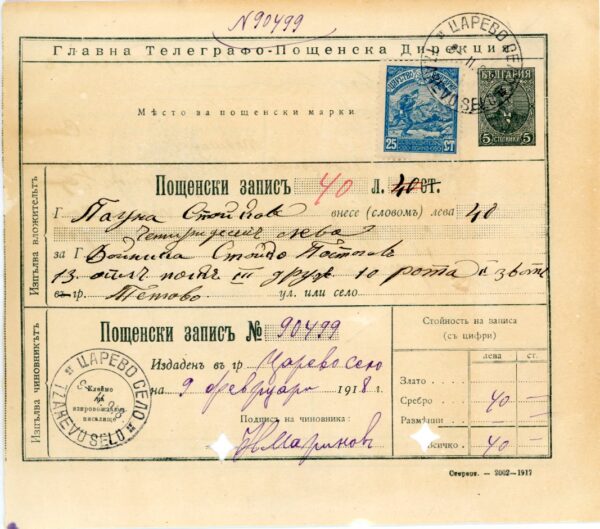 N 90499
Главна Телеграфо-Пощенска Дирекция
ЦАРЕВО СЕЛО
TZAREVO SELO
БЪЛГАРИЯ
Място за пощенски марки.
25 СТ
5 СТОТИНКИ 5
Изпълва вложительтъ
Пощенски записъ 40 Л. 40 ст.
Г Пауна Стойкова внесе (словомъ) лева 40
Четиридесетъ лева
за Г Войника Стойо
13 полкъ III друж 10 рота II взводъ
въ гр. Тетово ул. или село
Изпълва чиновникътъ
Пощенски записъ № 90499
Стойность на записа
(съ цифри)
Издаденъ въ гр Царево село
лева ст.
на 9 февруари 1918 г.
Злато
Клеймо
на
изпровождающе
писалище
ЦАРЕВО СЕЛО
TZAREVO SELO
Сребро 40 —
Подпись на чиновника:
Размѣнни —
Н Мариновъ
Всичко 40 —
2002—1917